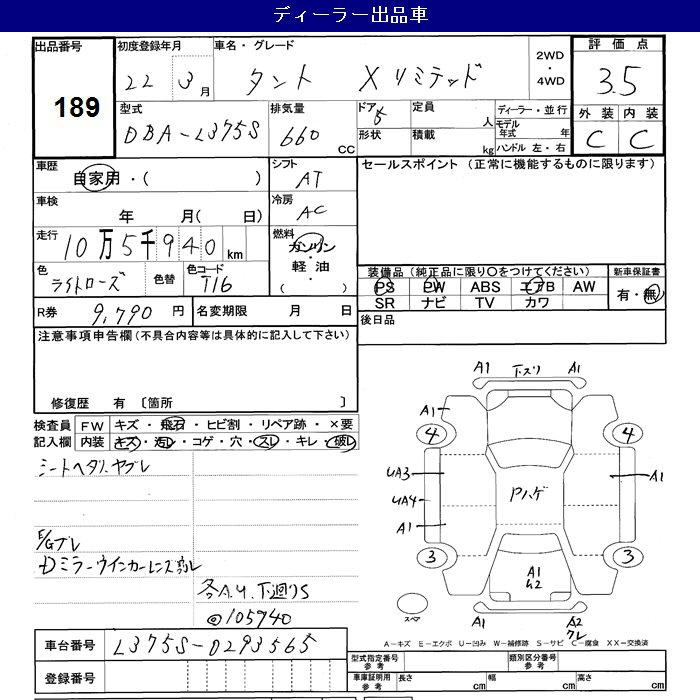 ディーラー出品車
出品番号
189
初度登録年月
22 3 月
車名・グレード
タント Xリミテッド
2WD
・
4WD
評価点
3.5
型式
DBA-L375S
排気量
660 CC
ドア 5
形状
定員 人
積載 kg
ディーラー・並行
モデル年式 年
ハンドル 左・右
外装 内装
C C
車歴
自家用・( )
シフト
AT
セールスポイント (正常に機能するものに限ります)
車検
年 月( 日)
冷房
AC
走行
10万5千940 km
燃料
ガソリン
・
軽油
・
( )
色
ライトローズ
色替
色コード
T16
装備品(純正品に限り○をつけてください)
PS PW ABS エアB AW
SR ナビ TV カワ
新車保証書
有・無
R券 9,790 円
名変期限 月 日
後日品
注意事項申告欄(不具合内容等は具体的に記入して下さい)
修復歴 有 〔箇所 〕
検査員記入欄
FW キズ・飛石・ヒビ割・リペア跡・×要
内装 キズ・汚レ・コゲ・穴・スレ・キレ・破レ
シートヘタリ、ヤブレ
E/Gブレ
Dミラーウインカーレンズ割レ
各A.U. 下廻りS
@105940
A1 下スリ A1
A1
4 4
UA3 Pハゲ A1
UA4
A1
3 3
A1
スペア
A1 A2
クレ
A-キズ E-エクボ U-凹み W-補修跡 S-サビ C-腐食 XX-交換済
車台番号 L375S-0293565
登録番号
型式指定番号
参考
類別区分番号
参考
車庫証明用
参考
長さ cm 幅 cm 高さ cm